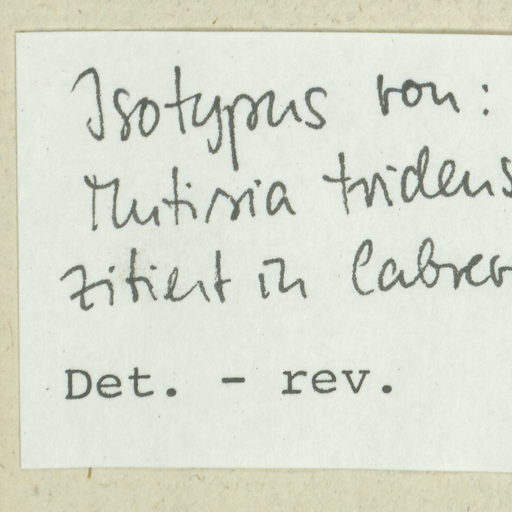 Isotypus von:
Mutisia tridens
zitiert in Cabrer
Det. - rev.